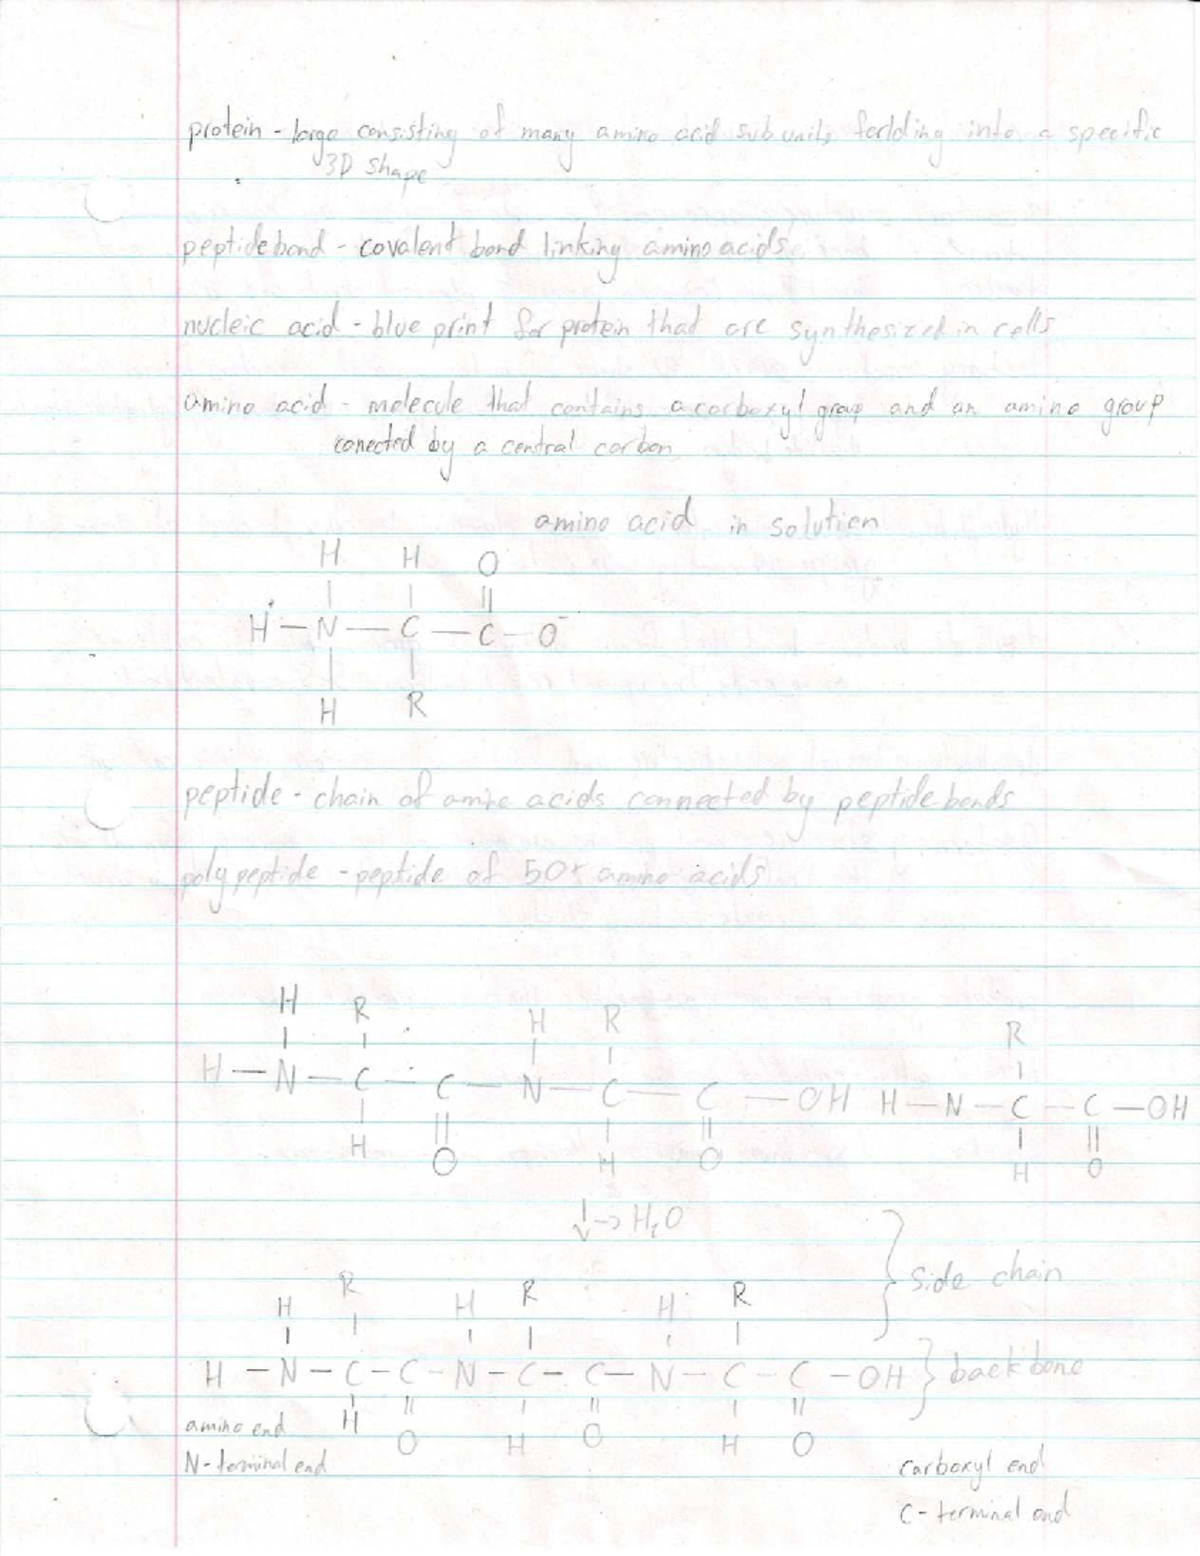 protein - large consisting of many amino acid subunits foriding into a specific
3D shape
peptide bond - covalent bond linking amino acids
nucleic acid - blue print for protein that are synthesized in cells
amino acid - molecule that contains a carboxyl group and an amino group
conected by a central carbon
amino acid in solution
H H O
H - N - C - C - O⁻
H R
peptide - chain of amino acids connected by peptide bonds
polypeptide - peptide of 50+ amino acids
H R H R R
H - N - C - C - N - C - C - OH H - N - C - C - OH
H O H O H O
↓ → H₂O
side chain
H R H R H R
H - N - C - C - N - C - C - N - C - C - OH } backbone
H O H O H O
amino end
N - terminal end
carboxyl end
C - terminal end